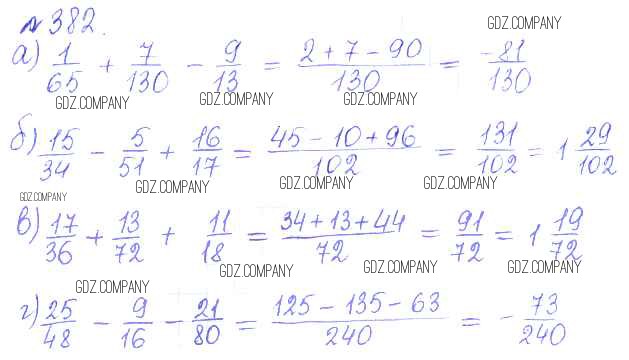 № 382.
GDZ.COMPANY
а) 1/65 + 7/130 - 9/13 = (2 + 7 - 90)/130 = -81/130
GDZ.COMPANY GDZ.COMPANY GDZ.COMPANY
б) 15/34 - 5/51 + 16/17 = (45 - 10 + 96)/102 = 131/102 = 1 29/102
GDZ.COMPANY GDZ.COMPANY GDZ.COMPANY
GDZ.COMPANY
в) 17/36 + 13/72 + 11/18 = (34 + 13 + 44)/72 = 91/72 = 1 19/72
GDZ.COMPANY GDZ.COMPANY GDZ.COMPANY
GDZ.COMPANY
г) 25/48 - 9/16 - 21/80 = (125 - 135 - 63)/240 = - 73/240